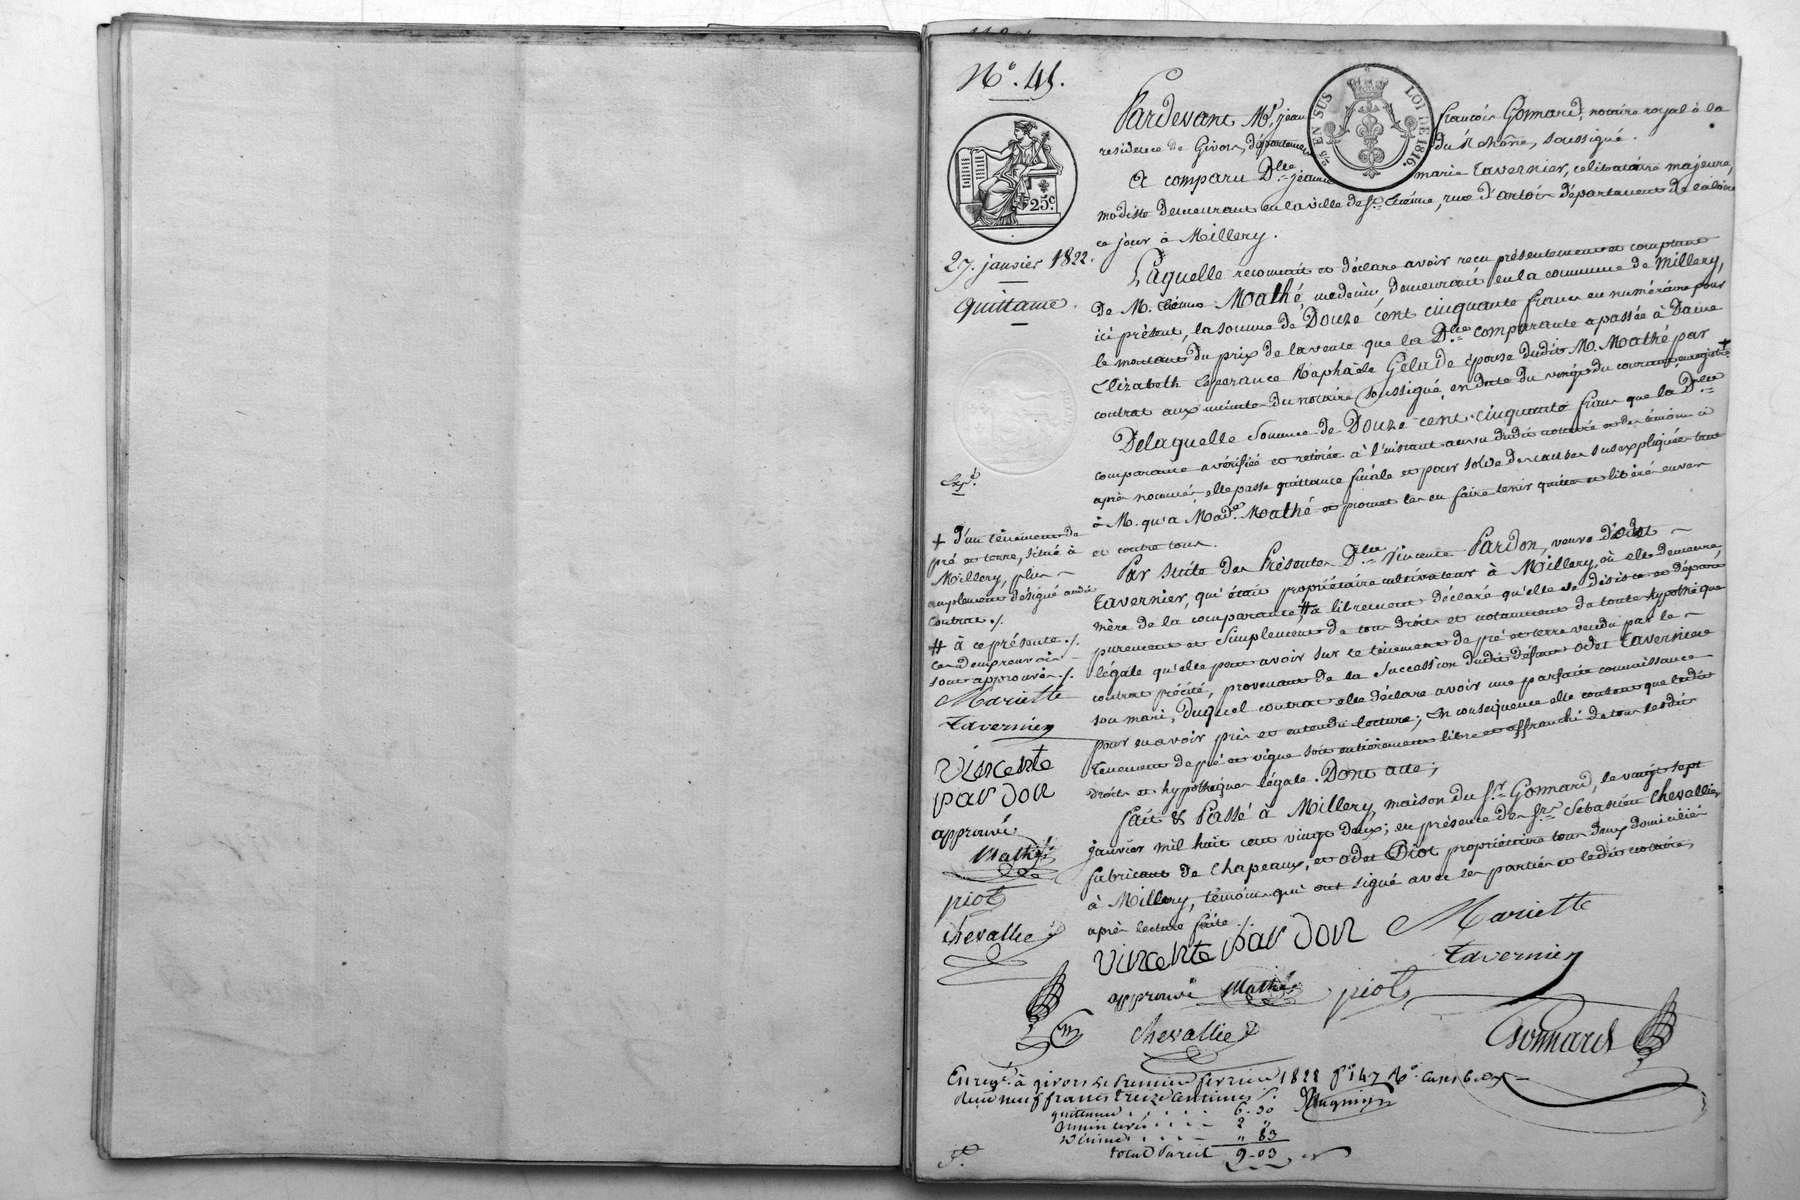 N.º 41.
2/5 EN SUS LOI DE 1816.
25.c
27. janvier 1822.
quittance.
Pardevant M.e jean françois Gonnard, notaire royal à la
residence de Givors, département du Rhône, soussigné.
A comparu D.lle jeanne marie Tavernier, celibataire majeure,
modiste demeurant en la ville de St. Etienne, rue d'artois département de la loire
ce jour à Millery.
Laquelle reconnait et déclare avoir reçu présentement et comptant
de M. Mathé, medecin, demeurant en la commune de Millery,
ici présent, la somme de Douze cent cinquante francs en numéraire pour
le montant du prix de la vente que la D.lle comparante a passée à Dame
Elizabeth Esperance Raphaële Gélade épouse dudit M. Mathé par
contrat aux minutes du notaire soussigné, en date du vingt du courant enregistré +
Delaquelle somme de Douze cent cinquante francs que la D.lle
comparante a vérifiée et retirée à l'instant au vu dudit notaire et des témoins ci
après nommés, elle passe quittance finale et pour solde des causes susexpliquées tant
à M. qu'a Mad.e Mathé et promet les en faire tenir quittes et libérés envers
et contre tous.
Par suite des Présentes D.lle Vincente Pardon, veuve d'odet
Tavernier, qui était propriétaire cultivateur à Millery, où elle demeure,
mère de la comparante, # a librement déclaré qu'elle se désiste et départ
purement et simplement de tous droits et notamment de toute hypothèque
légale qu'elle peut avoir sur le tènement de pré et terre vendu par le
contrat précité, provenant de la succession dudit défunt odet Tavernier
son mari, duquel contrat elle déclare avoir une parfaite connaissance
pour en avoir pris et entendu lecture; en conséquence elle consent que ledit
tènement de pré et vigne soit entièrement libre et affranchi de tous lesdits
droits et hypothèques légale. Dont acte;
Fait & Passé à Millery, maison du S.r Gonnard, le vingt sept
janvier mil huit cent vingt deux; en présence des S.rs Sebastien Chevallier
fabricant de Chapeaux, et odet Piot propriétaire tous deux domiciliés
à Millery, témoins qui ont signé avec les parties et ledit notaire,
après lecture faite./.
Exp.é
+ d'un tènement de
pré et terre, situé à
Millery, plus
amplement désigné audit
contrat ./.
# à ce présente ./.
ces deux renvois
sont approuvés ./.
Mariette
Tavernier
vincente
pardon
approuvé
Mathé
piot
chevallier
vincente pardon Mariette
Tavernier
approuvé Mathé piot
chevallier
Gonnard
Enreg.é à givors le Premier fevrier 1822 f.o 147
Reçu neuf francs trois Centimes
quittance 6.30
2 "
" 83
9-03